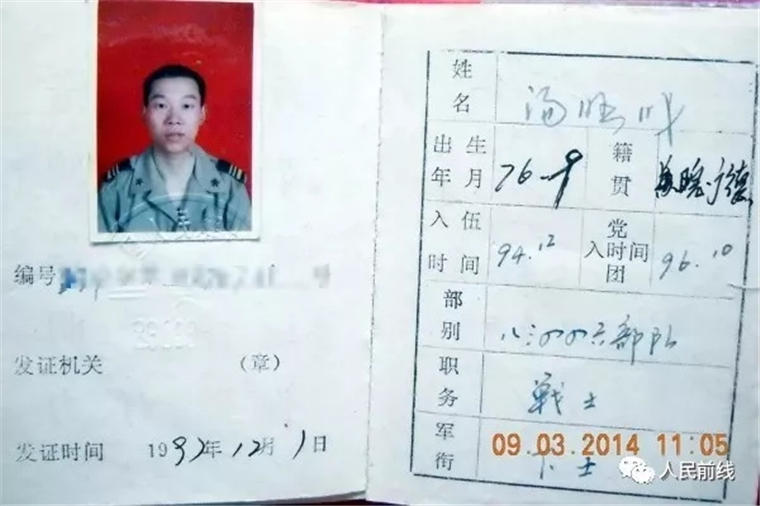 编号 号
发证机关 (章)
发证时间 1997年12月1日
姓名 汤
出生年月 76.9
籍贯 安徽广德
入伍时间 94.12
入党团时间 96.10
部别 部队
职务 战士
军衔 下士
09.03.2014 11:05
人民前线